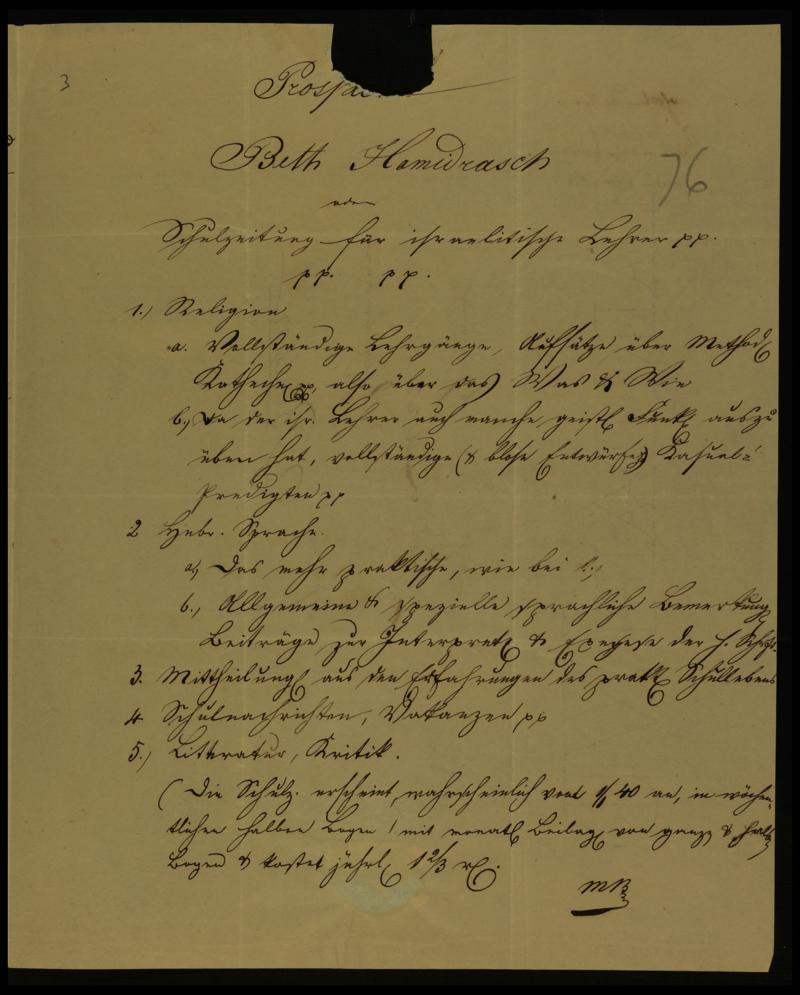 3
Prospec
Beth Hamidrasch
76
oder
Schulzeitung für israelitische Lehrer pp.
pp. pp.
1.) Religion
a. Vollständige Lehrgänge, Aufsätze über Method
Kateche pp, also über das Was & Wie
b.) Da der isr. Lehrer auch manche geistl Funkt auszu
üben hat, vollständige (& blose Entwürfe) Kasual=
Predigten pp
2 Hebr. Sprache.
a) Das mehr praktische, wie bei 1.)
b.) Allgemeine & spezielle sprachliche Bemerkung
Beiträge zur Interpret & Exegese der h. Schrift.
3. Mittheilung aus den Erfahrungen des prakt Schullebens
4 Schulnachrichten, Vakanzen pp
5.) Litteratur, Kritik.
(Die Schulz. erscheint wahrscheinlich vom 1/1 40 an, in wöchen-
tlichen halben Bogen / mit monatl Beilag von ganz & halb
Bogen & kostet jährl 1 2/3 rl.